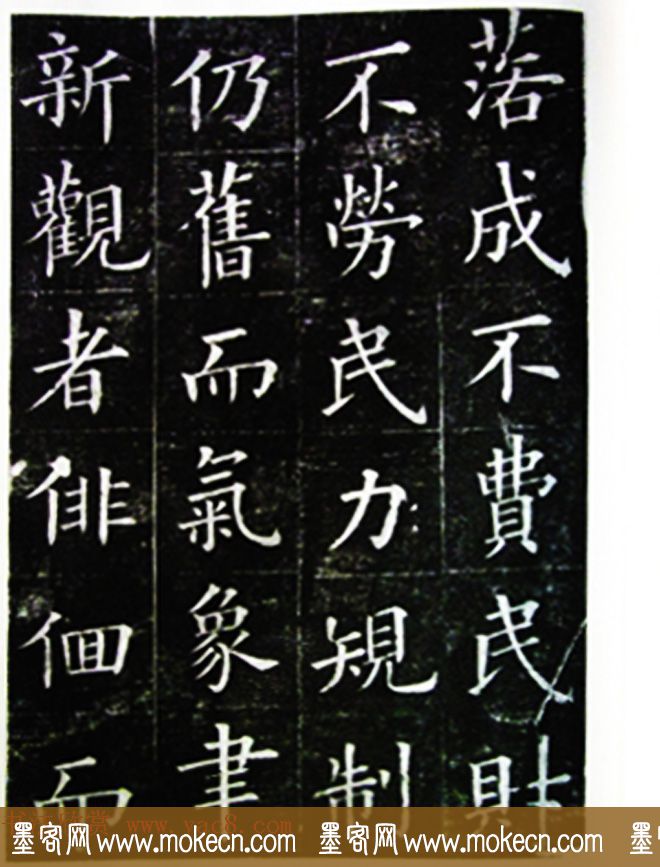 落成不費民財
不勞民力規制
仍舊而氣象
新觀者俳佪而
www.yac8.com
墨客网 www.mokecn.com 墨客网 www.mokecn.com